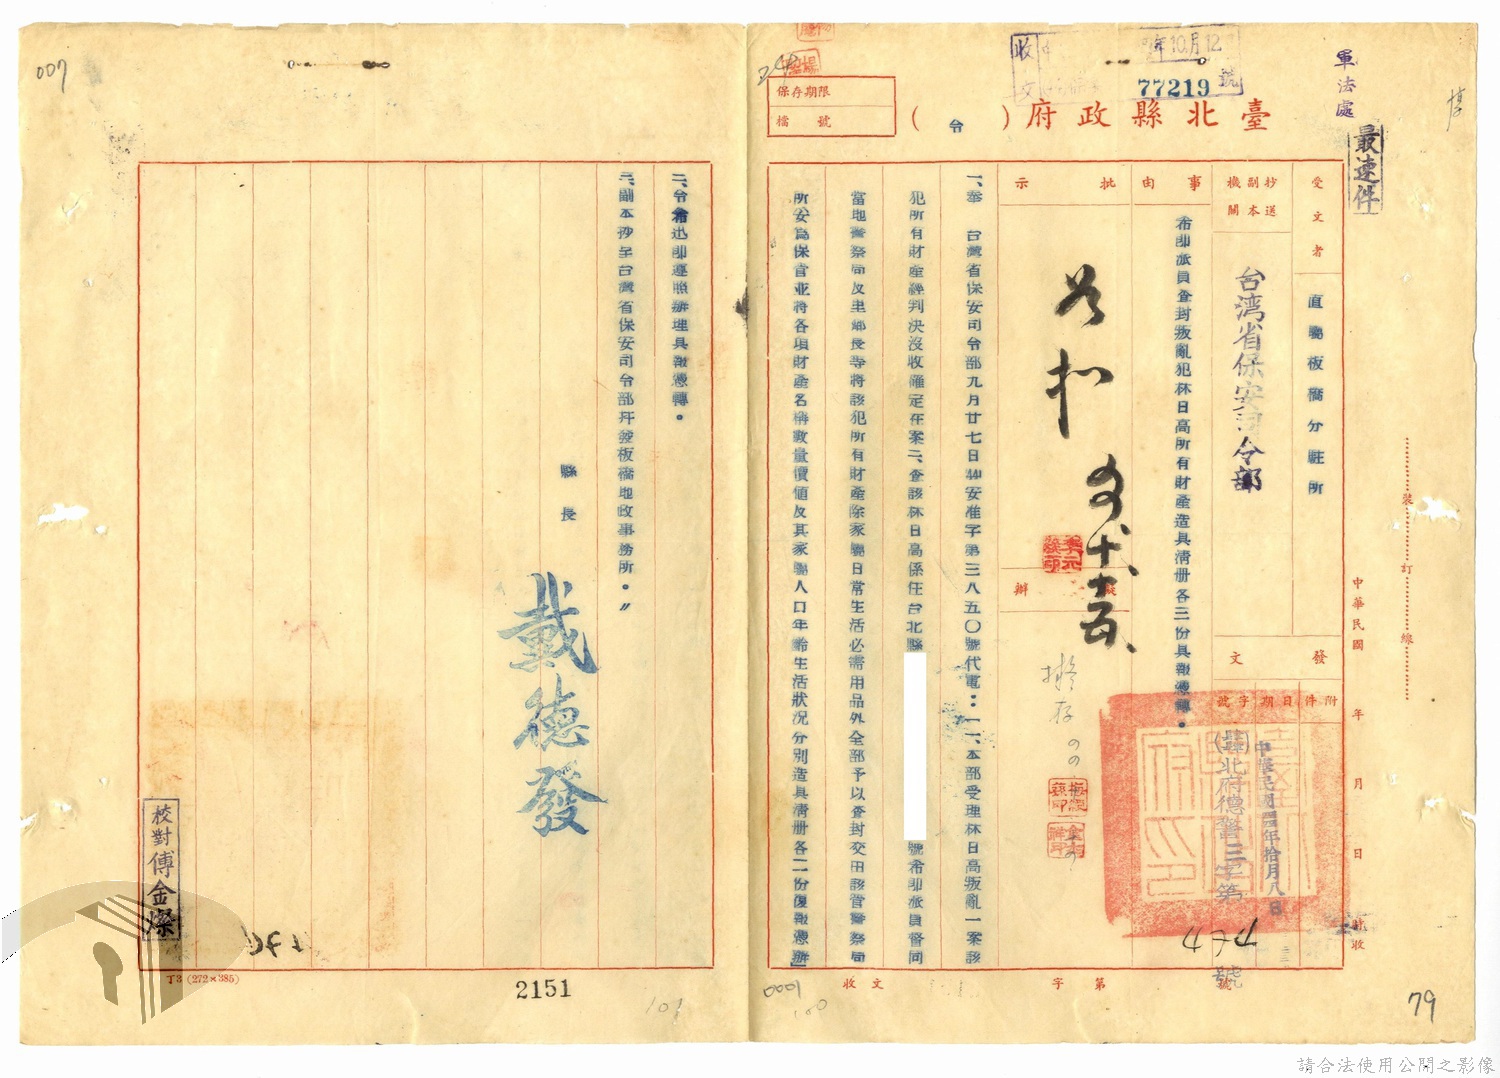 軍法處
最速件
臺北縣政府（令）
收文
年10月12
77219
號
保存期限
檔號
受文者
直屬板橋分駐所
抄送副本機關
台湾省保安司令部
發文
附件
日期
中華民國四年拾月八日
字號
北府德警三字第
號
事由
希即派員查封叛亂犯林日高所有財產造具清册各三份具報憑轉。
批示
擬辦
擬存
一、奉 台灣省保安司令部九月廿七日(44)安准字第三八五〇號代電：「一、本部受理林日高叛亂一案該
犯所有財產經判决沒收確定在案二、查該林日高係住台北縣
號希即派員督同
當地警察局及里鄰長等將該犯所有財產除家屬日常生活必需用品外全部予以查封交由該管警察局
所妥為保管並将各項財產名稱數量價值及其家屬人口年齡生活狀況分別造具清册各二份復報憑辦」
二、令希迅即遵照辦理具報憑轉。
三、副本抄呈台灣省保安司令部幷發板橋地政事務所。〃
縣長
戴德發
校對傅金燦
裝
訂
線
中華民國 年 月 日 時收
收文 字第 號
T3 (272×385)
2151
007
0001
100
101
79
請合法使用公開之影像